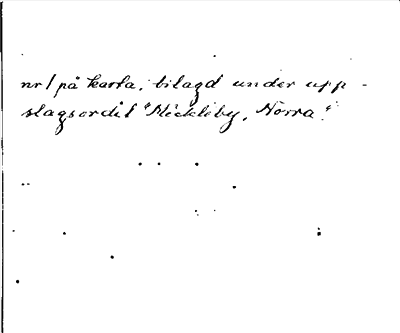 nr 1 på karta, bilagd under upp-
slagsordet "Mickleby, Norra".